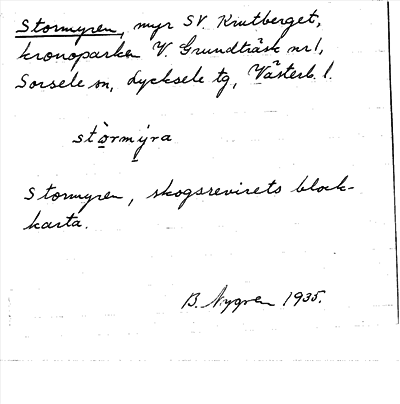 Stormyren, myr SV. Krutberget,
kronoparken V. Grundträsk nr 1,
Sorsele sn, Lycksele tg, Västerb. l.
stòrmýra
Stormyren, skogsrevirets block-
karta.
B. Nygren 1935.